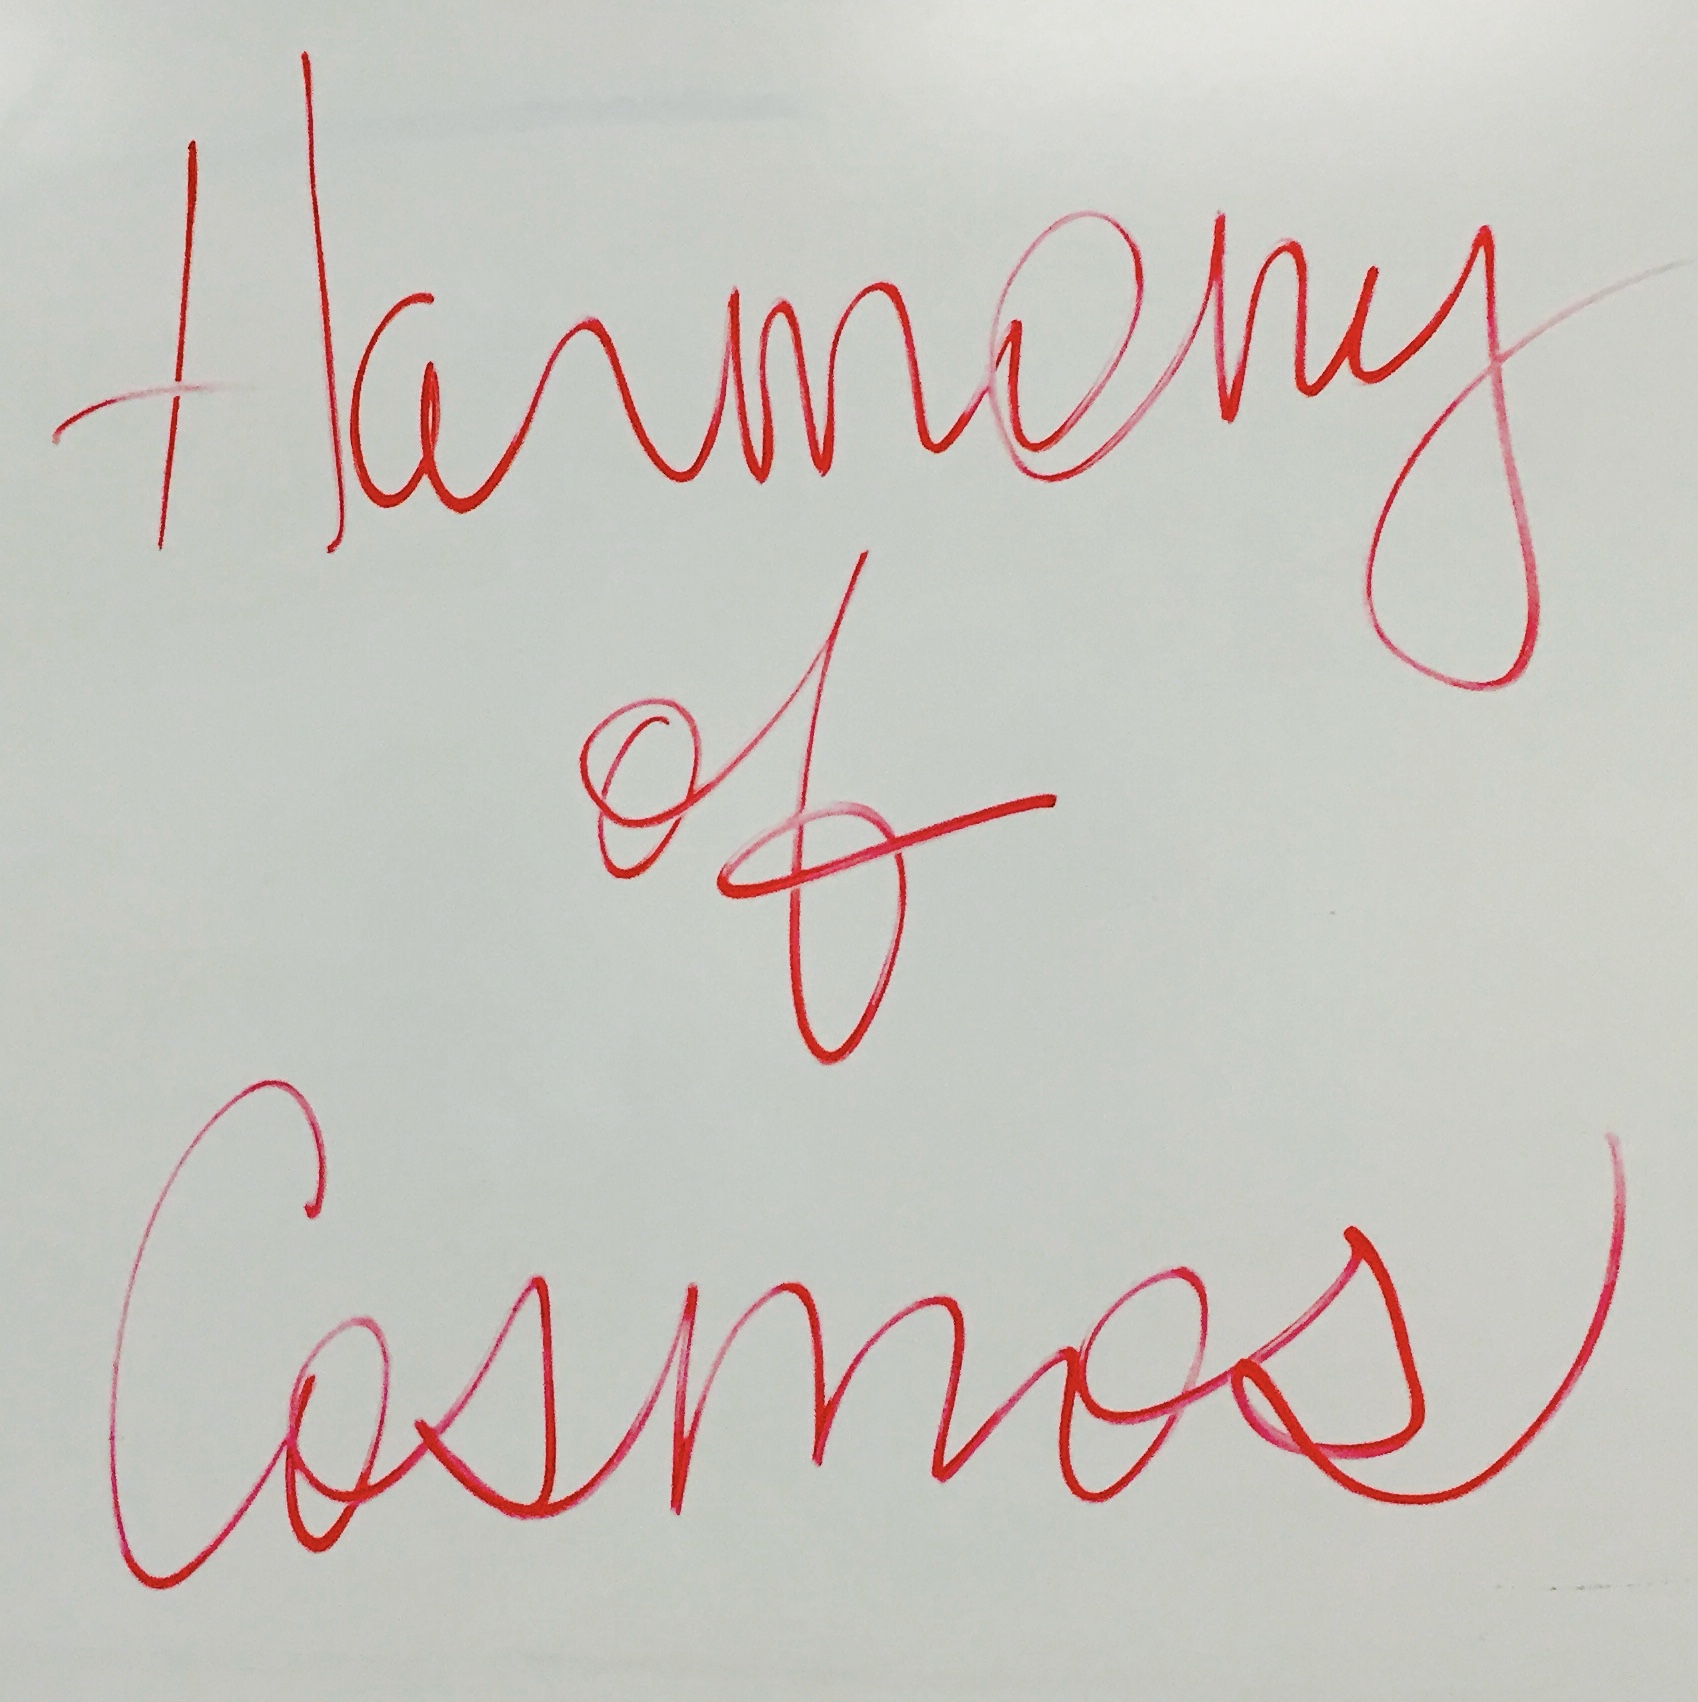 Harmony
of
Cosmos